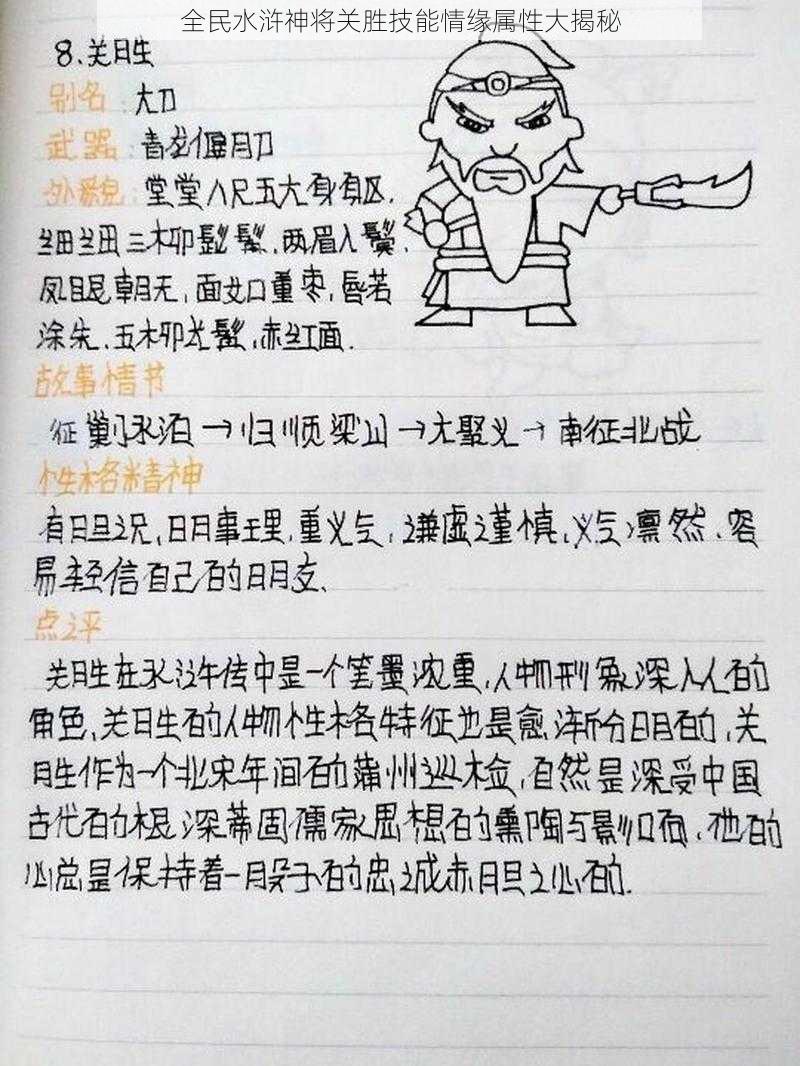 全民水浒神将关胜技能情缘属性大揭秘
8.关胜
别名:大刀
武器:青龙偃月刀
外貌:堂堂八尺五大身躯.
细细三柳髭髯,两眉入鬓,
凤眼朝天,面如重枣,唇若
涂朱.五柳长髯,赤红面.
故事情节
征剿水泊→归顺梁山→大聚义→南征北战
性格精神
有胆识,明事理,重义气,谦虚谨慎,义气凛然.容
易轻信自己的朋友.
点评
关胜在水浒传中是一个笔墨浓重,人物形象深入人的
角色,关胜的人物性格特征也是愈渐分明的,关
胜作为一个北宋年间的蒲州巡检,自然是深受中国
古代的根深蒂固儒家思想的熏陶与影响,他的
心总是保持着一股子的忠诚赤胆之心的.